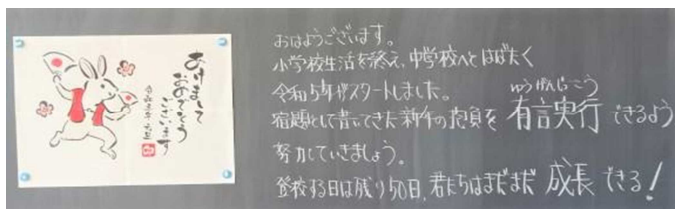 あけまして
おめでとう
ございます
令和五年 元旦
おはようございます。
小学校生活を終え、中学校へとはばたく
令和5年がスタートしました。
宿題として書いてきた新年の抱負を
ゆうげんじっこう
有言実行できるよう
努力していきましょう。
登校する日は残り50日、君たちはまだまだ 成長できる！